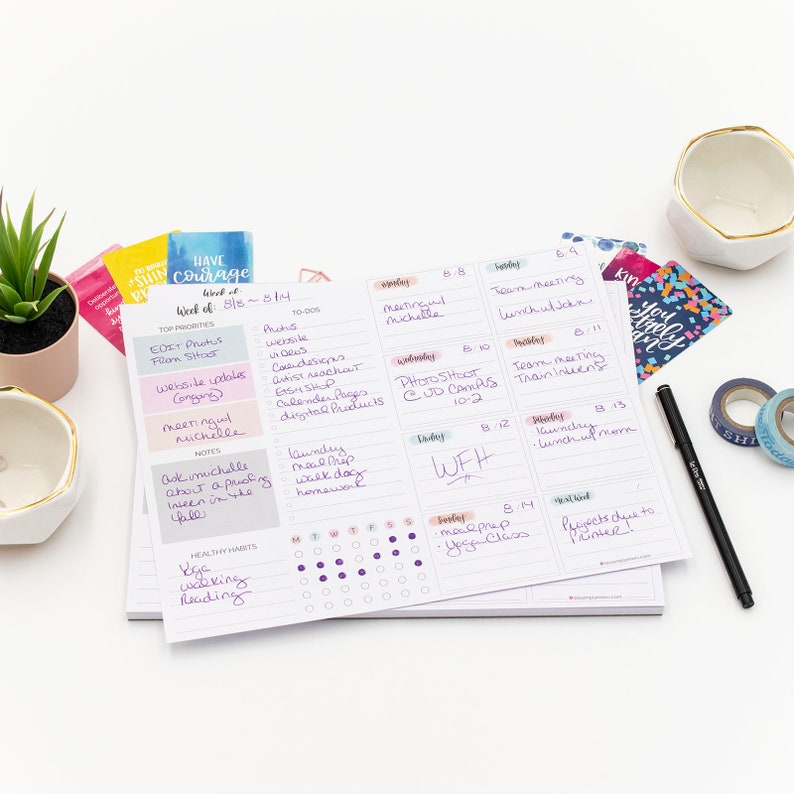 HAVE
courage
Week of:
Week of: 8/8 ~ 8/14
TOP PRIORITIES
EDIT PHOTOS
FROM SHOOT
website updates
(ongoing)
meeting w/
michelle
NOTES
ask michelle
about a proofing
intern in the
fall
HEALTHY HABITS
Yoga
walking
Reading
TO-DOS
Photos
website
videos
coverdesigns
artist reachout
Etsy Shop
calendar Pages
digital Products
laundry
meal Prep
walk dog
homework
M T W T F S S
Monday
8/8
meeting w/
michelle
Tuesday
8/9
Team meeting
Lunch w/ John
Wednesday
8/10
PHOTOSHOOT
@ UD CAMPUS
10-2
Thursday
8/11
Team meeting
Train Interns
Friday
8/12
WFH
Saturday
8/13
· laundry
· lunch w/ mom
Sunday
8/14
· meal prep
· Yoga Class
Next Week
Projects due to
printer!
bloomplanners.com
bloomplanners.com
you